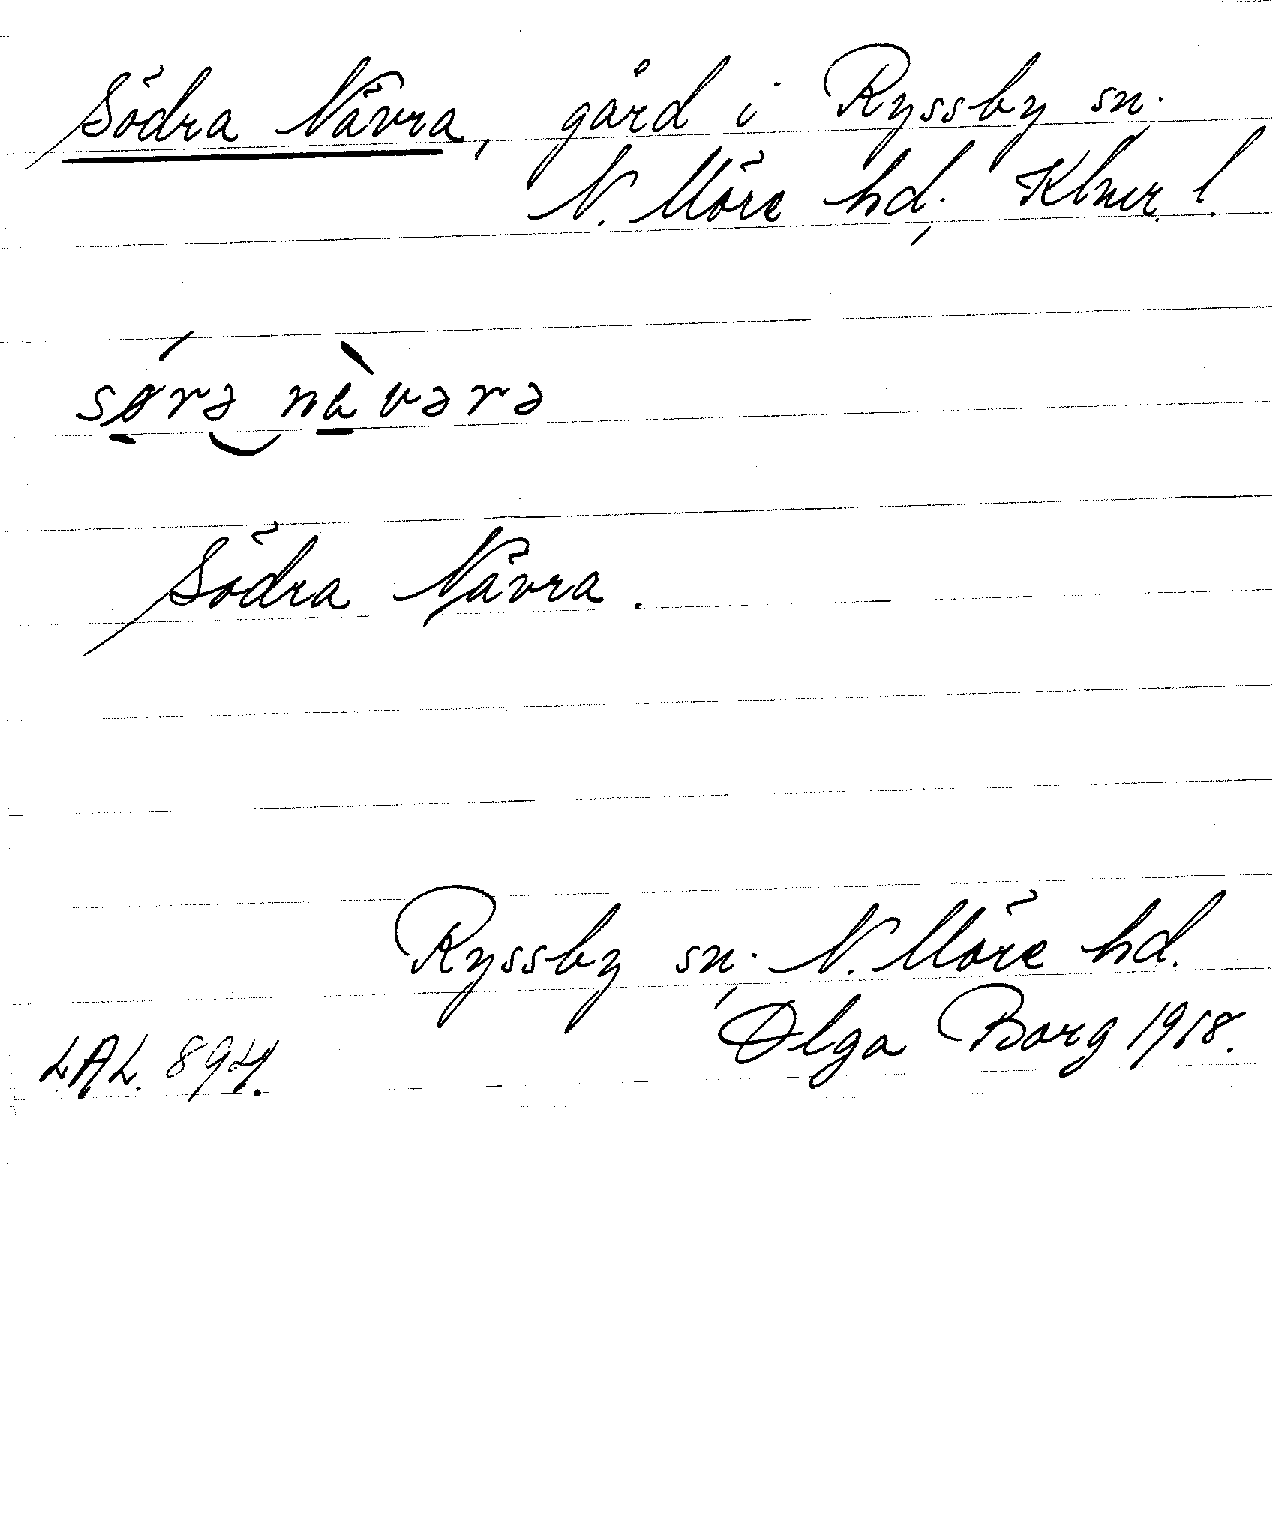 Södra Nävra, gård i Ryssby sn.
N. Möre hd, Klmr l.
sørə nàvərə
Södra Nävra.
Ryssby sn, N. Möre hd.
Olga Borg 1918.
LAL. 894.